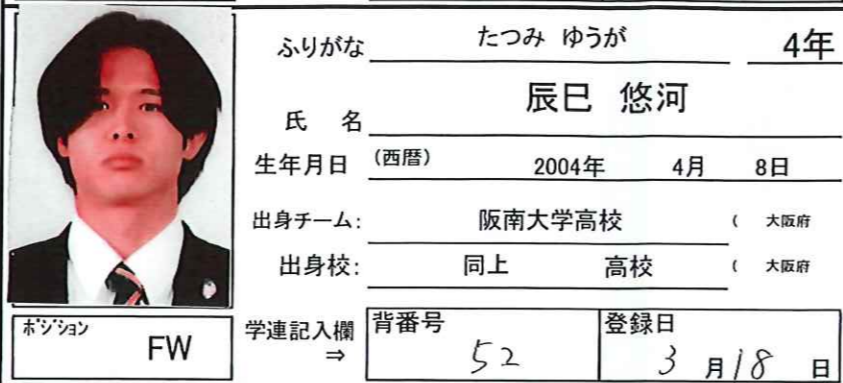 ふりがな たつみ ゆうが 4年
氏 名 辰巳 悠河
生年月日 (西暦) 2004年 4月 8日
出身チーム: 阪南大学高校 ( 大阪府
出身校: 同上 高校 ( 大阪府
ポジション FW 学連記入欄 ⇒ 背番号 52 登録日 3月18日